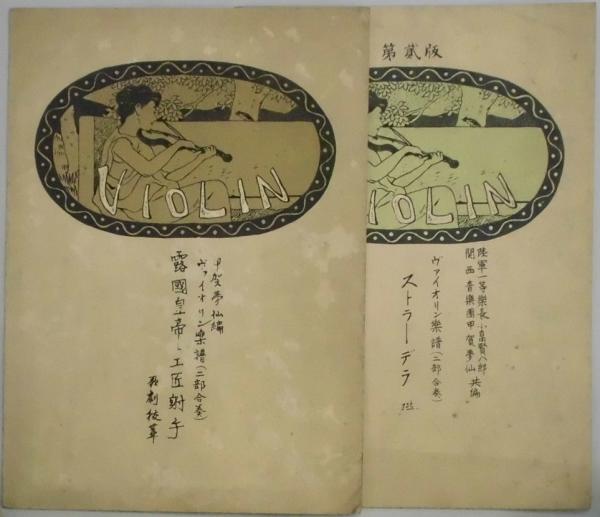 VIOLIN
甲賀夢仙編
ヴァイオリン樂譜(二部合奏)
露國皇帝ト工匠射手
歌劇抜萃
第貳版
VIOLIN
陸軍一等樂長小畠賢八郎
関西音樂團甲賀夢仙 共編
ヴァイオリン樂譜(二部合奏)
ストラーデラ